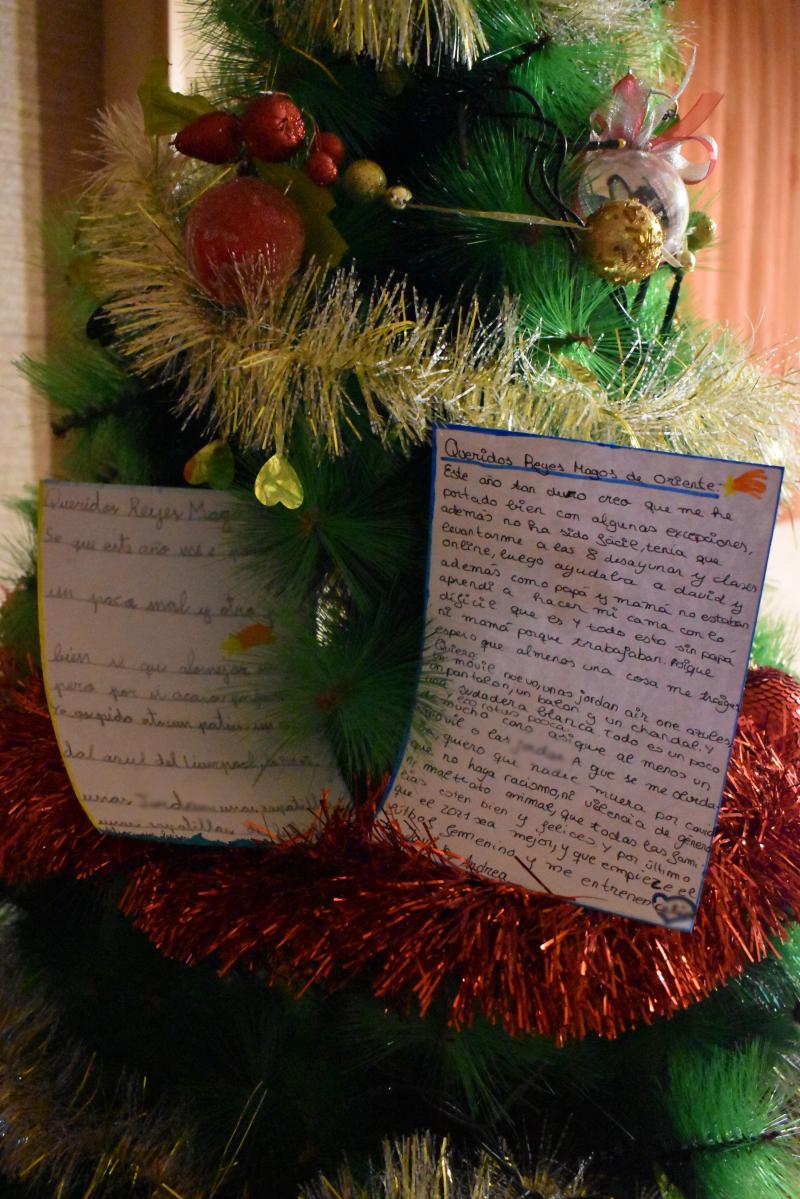 Queridos Reyes Mag
Se que este año me e
un poco mal y otro
bien se que
pero por si acaso
Os pido
dal azul del Liverpool,
unas unas
unas zapatillas
Queridos Reyes Magos de Oriente:
Este año tan duro creo que me he
portado bien con algunas excepciones,
además no ha sido fácil, tenía que
levantarme a las 8 desayunar y clases
online, luego ayudaba a david y
además como papá y mamá no estaban
aprendí a hacer mi cama con lo
dificil que es Y todo esto sin papá
ni mamá porque trabajaban. Asique
espero que almenos una cosa me traigan
Quiero:
Un móvil nuevo, unas jordan air one azules,
un pantalon, un balon y un chandal, Y
una sudadera blanca Todo es un poco
mucho caro asique al menos un
móvil o las A que se me olvida
quiero que nadie muera por covid
que no haya racismo, ni violencia de género
ni maltrato animal, que todas las fami-
lias esten bien y felices. Y por último
que el 2021 sea mejor, y que empieze el
fútbol femenino y me entrenen
Andrea